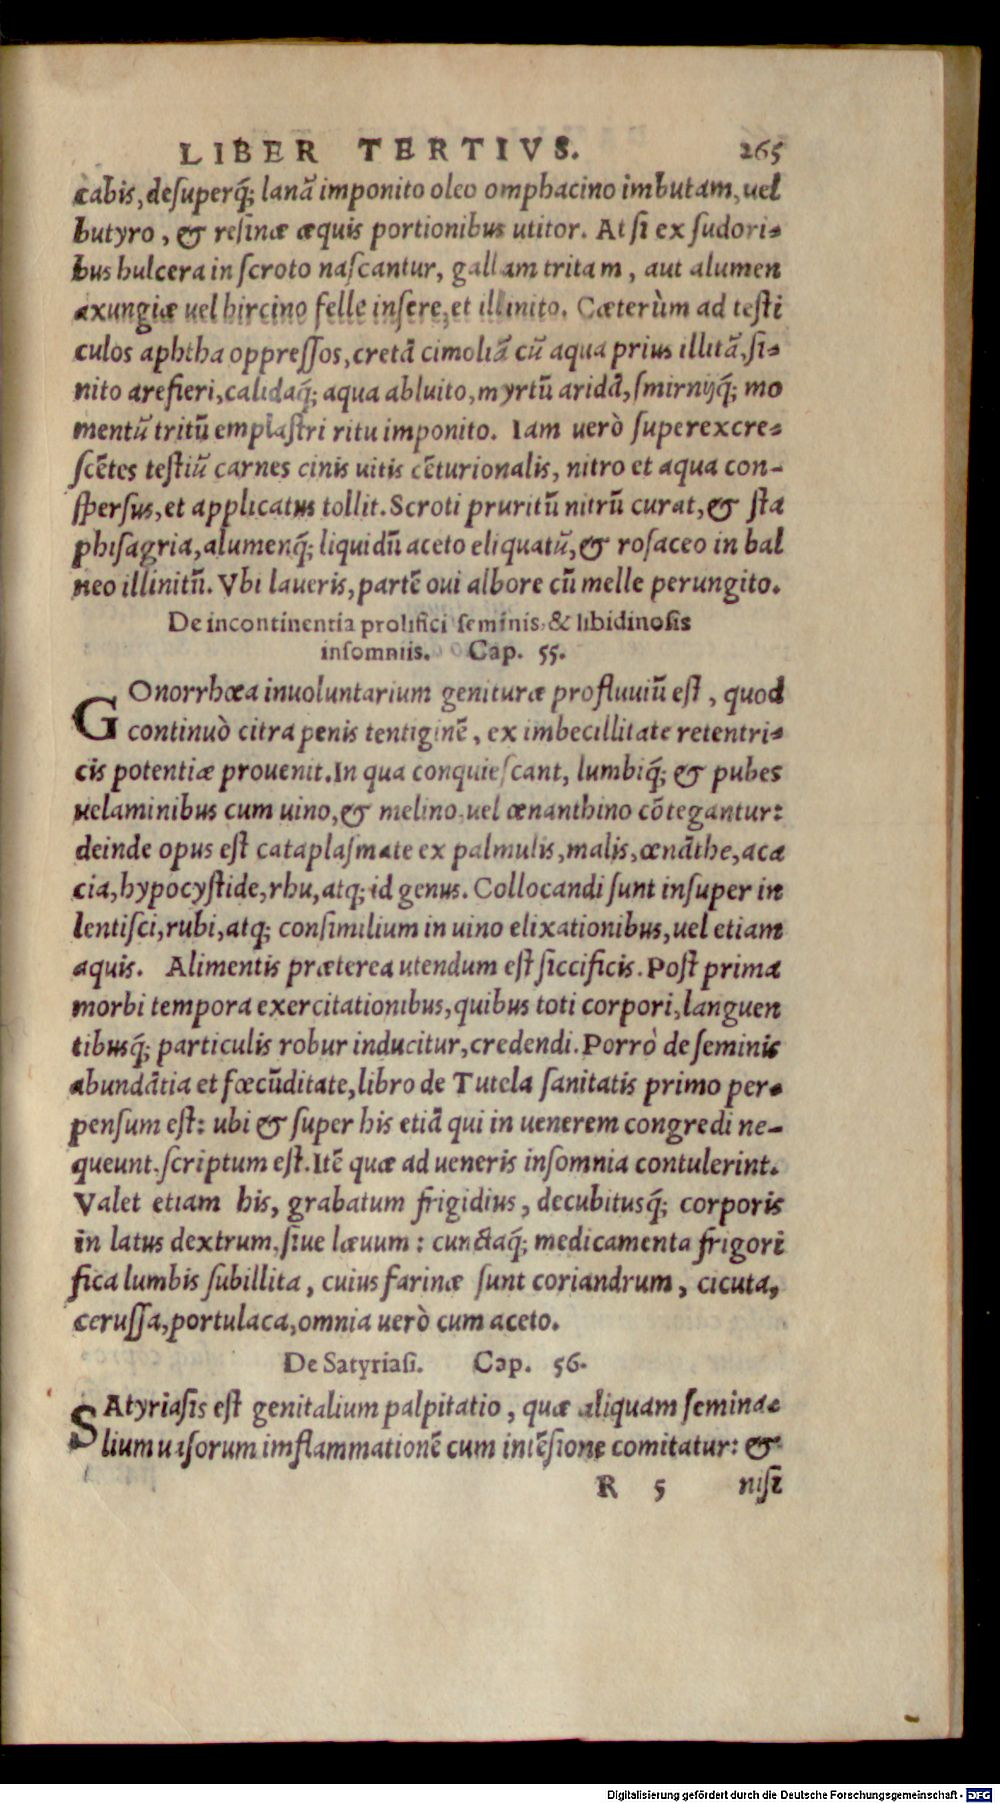 LIBER TERTIVS. 265
cabis, desuperq́; lanā imponito oleo omphacino imbutam, uel
butyro, & resinæ æquis portionibus utitor. At si ex sudori-
bus hulcera in scroto nascantur, gallam tritam, aut alumen
axungiæ uel hircino felle insere, et illinito. Cæterùm ad testi
culos aphtha oppressos, cretā cimoliā cū aqua prius illitā, si-
nito arefieri, calidaq́; aqua abluito, myrtū aridā, smirnijq́; mo
mentū tritū emplastri ritu imponito. Iam uerò superexcre-
scētes testiū carnes cinis uitis cēturionalis, nitro et aqua con-
spersus, et applicatus tollit. Scroti pruritū nitrū curat, & sta
phisagria, alumenq́; liquidū aceto eliquatū, & rosaceo in bal
neo illinitū. Vbi laueris, partē oui albore cū melle perungito.
De incontinentia prolifici seminis, & libidinosis
insomniis. Cap. 55.
GOnorrhœa inuoluntarium genituræ profluuiū est, quod
continuò citra penis tentiginē, ex imbecillitate retentri-
cis potentiæ prouenit. In qua conquiescant, lumbiq́; & pubes
uelaminibus cum uino, & melino, uel œnanthino cōtegantur:
deinde opus est cataplasmate ex palmulis, malis, œnāthe, aca
cia, hypocystide, rhu, atq; id genus. Collocandi sunt insuper in
lentisci, rubi, atq; consimilium in uino elixationibus, uel etiam
aquis. Alimentis præterea utendum est siccificis. Post prima
morbi tempora exercitationibus, quibus toti corpori, languen
tibusq́; particulis robur inducitur, credendi. Porrò de seminis
abundātia et fœcūditate, libro de Tutela sanitatis primo per-
pensum est: ubi & super his etiā qui in uenerem congredi ne-
queunt, scriptum est. Itē quæ ad ueneris insomnia contulerint.
Valet etiam his, grabatum frigidius, decubitusq́; corporis
in latus dextrum, siue læuum: cunctaq́; medicamenta frigori
fica lumbis subillita, cuius farinæ sunt coriandrum, cicuta,
cerussa, portulaca, omnia uerò cum aceto.
De Satyriasi. Cap. 56.
SAtyriasis est genitalium palpitatio, quæ aliquam semina-
lium uasorum imflammationē cum intēsione comitatur: &
R 5 nisi
Digitalisierung gefördert durch die Deutsche Forschungsgemeinschaft - DFG